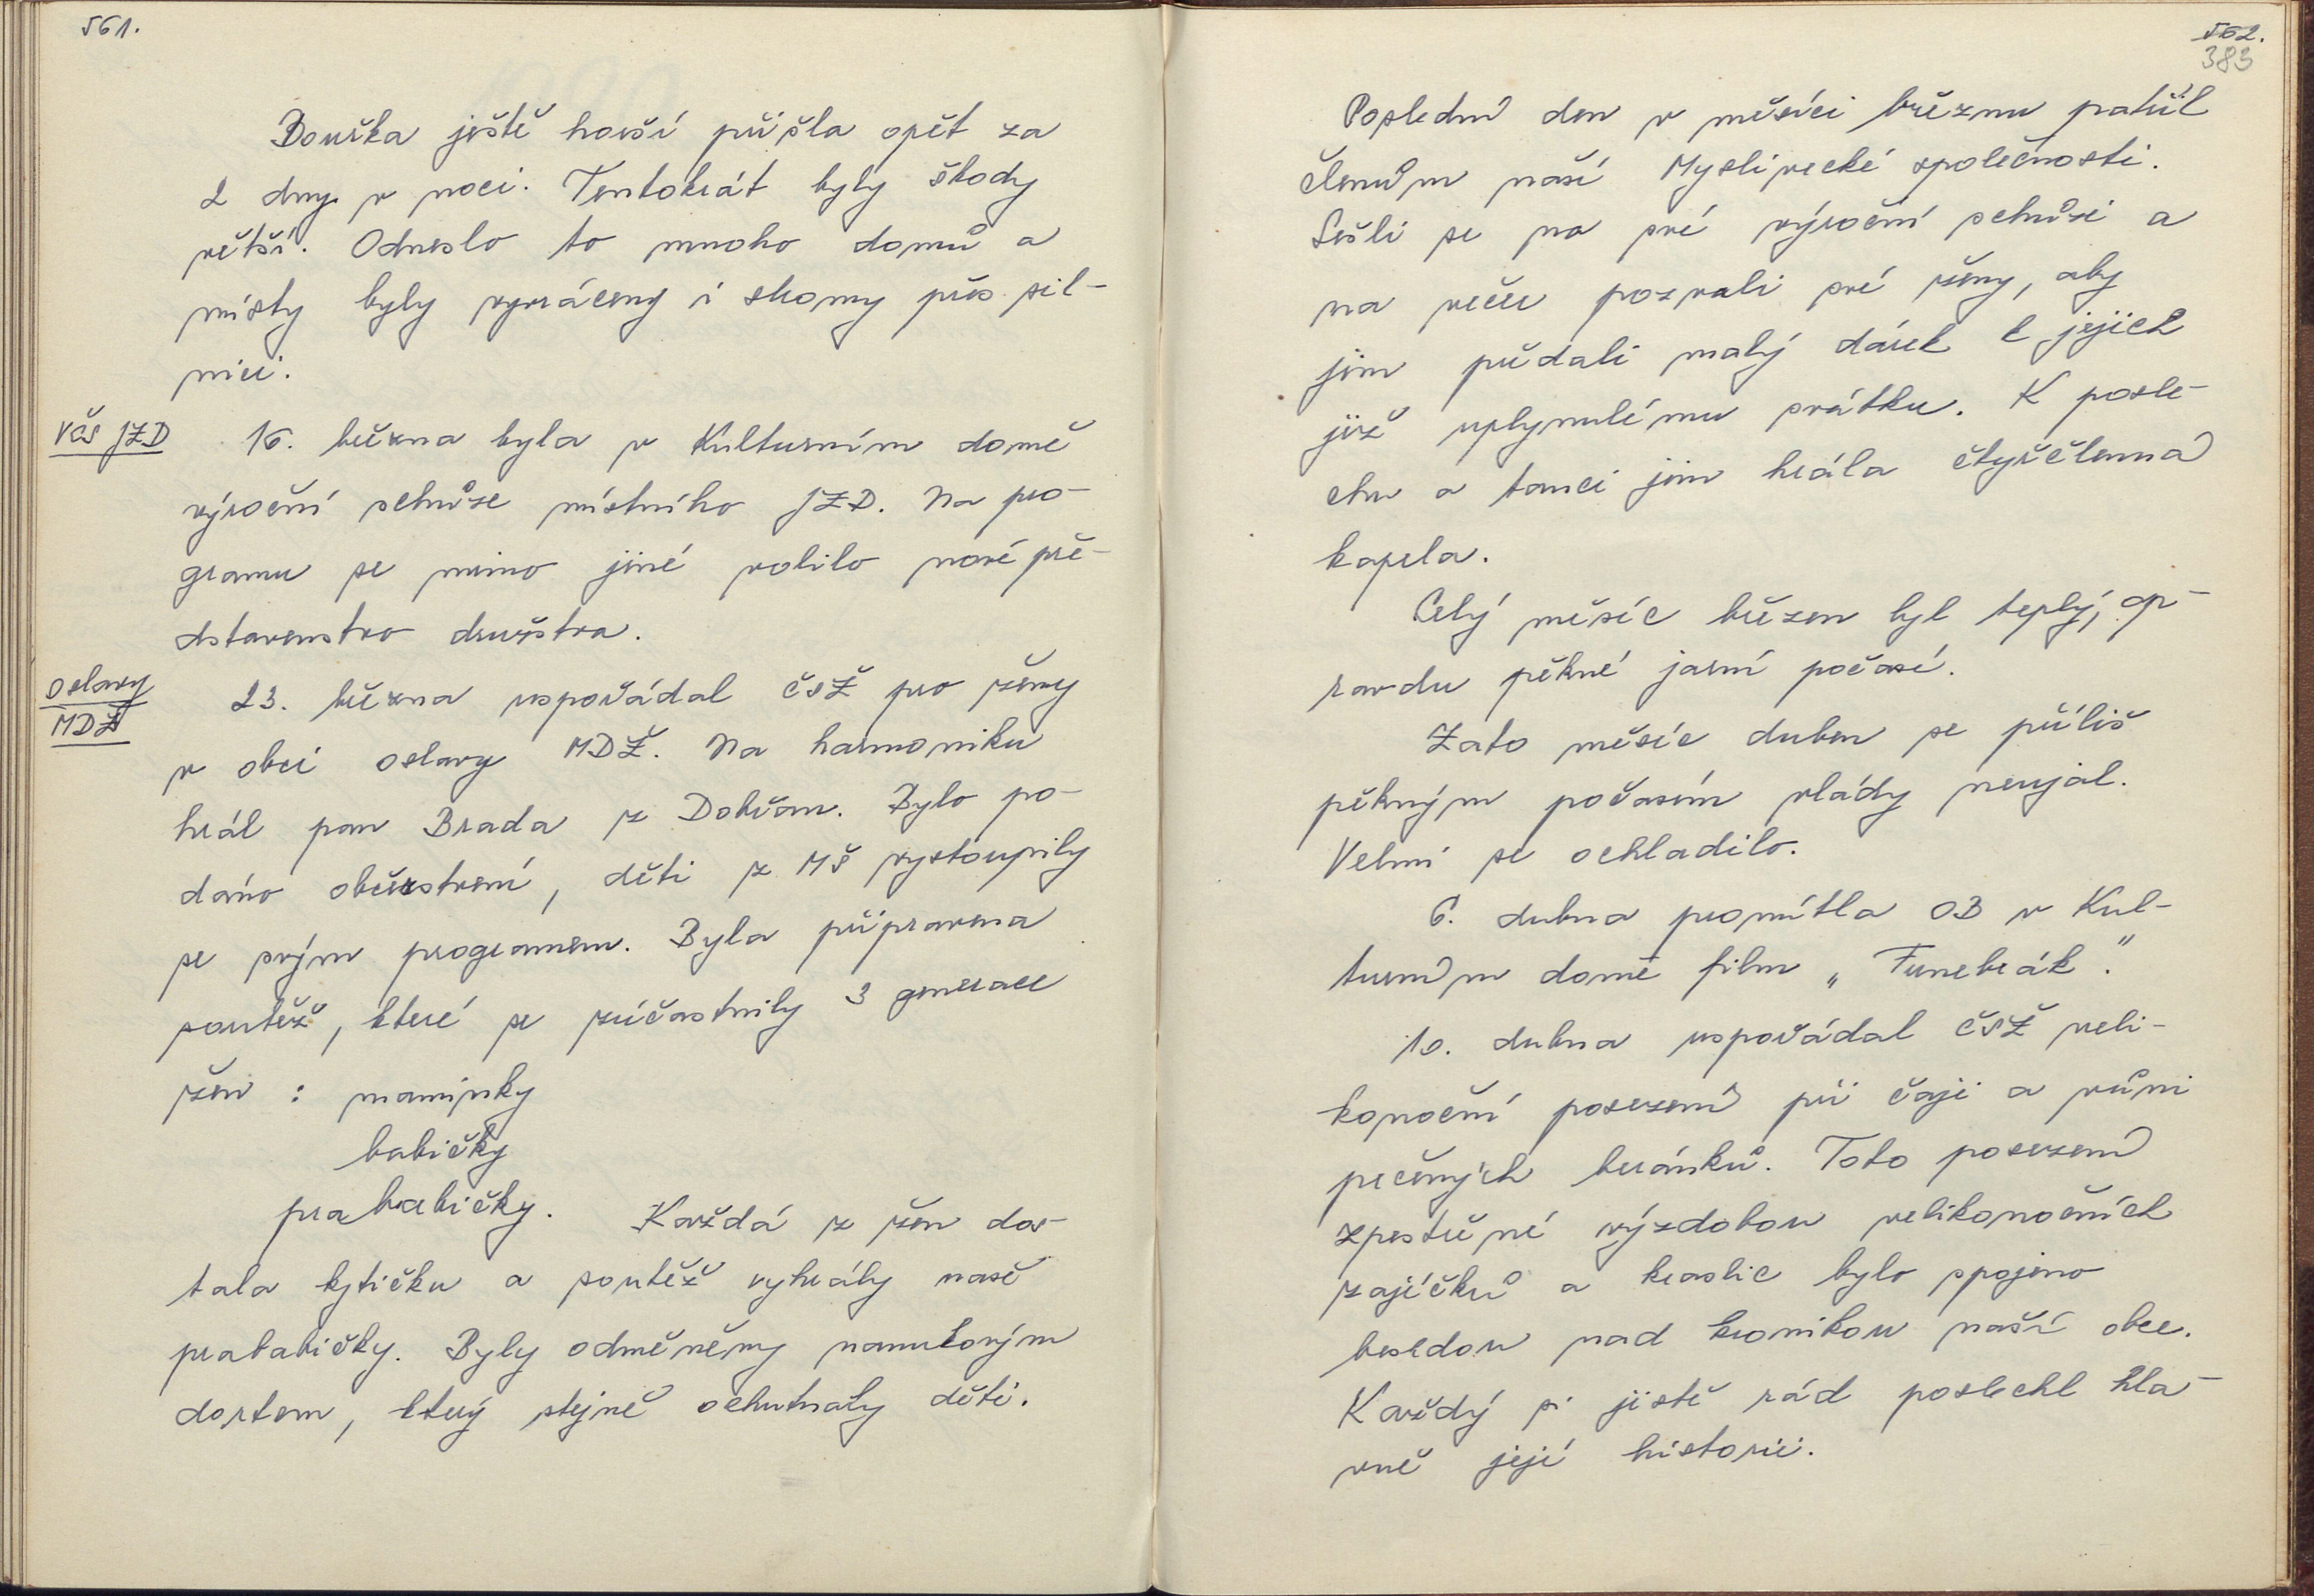 561.
Bouřka ještě horší přišla opět za
2 dny v noci. Tentokrát byly škody
větší. Odneslo to mnoho domů a
místy byly vyvráceny i stromy přes sil-
nici.
VČS JZD
16. března byla v Kulturním domě
výroční schůze místního JZD. Na pro-
gramu se mimo jiné volilo nové pře-
dstavenstvo družstva.
Oslavy
MDŽ
23. března uspořádal ČSŽ pro ženy
v obci oslavy MDŽ. Na harmoniku
hrál pan Brada z Dobřan. Bylo po-
dáno občerstvení, děti z MŠ vystoupily
se svým programem. Byla připravena
soutěž, které se zúčastnily 3 generace
žen : maminky
babičky
prababičky. Každá z žen dos-
tala kytičku a soutěž vyhrály naše
prababičky. Byly odměněny nanukovým
dortem, který stejně ochutnaly děti.
562.
383
Poslední den v měsíci březnu patřil
členům naší Myslivecké společnosti.
Sešli se na své výroční schůzi a
na večer pozvali své ženy, aby
jim předali malý dárek k jejich
již uplynulému svátku. K posle-
chu a tanci jim hrála čtyřčlenná
kapela.
Celý měsíc březen byl teplý, op-
ravdu pěkné jarní počasí.
Zato měsíc duben se příliš
pěkným počasím vlády neujal.
Velmi se ochladilo.
6. dubna promítla OB v Kul-
turním domě film „Funebrák".
10. dubna uspořádal ČSŽ veli-
konoční posezení při čaji a vůni
pečených beránků. Toto posezení
zpestřené výzdobou velikonočních
zajíčků a kraslic bylo spojeno
besedou nad kronikou naší obce.
Každý si jistě rád poslechl hla-
vně její historii.